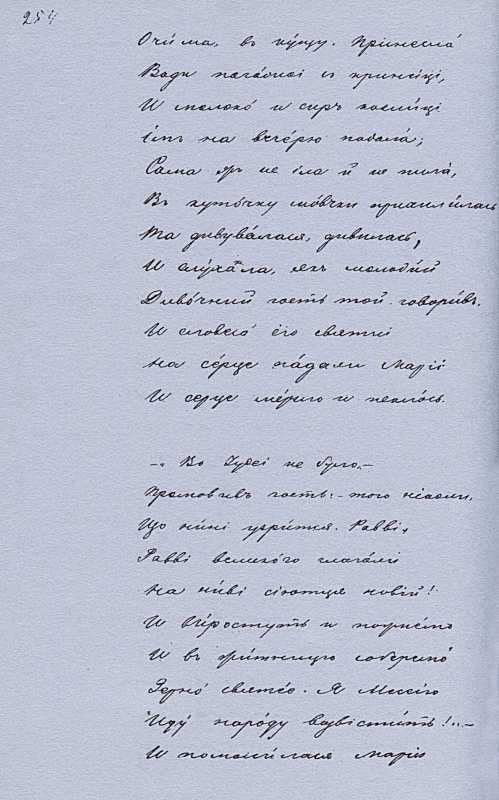 254
Очи́ма, въ ку́щу. Принесла́
Води пога́жої съ крини́ці,
И молоко́ и сиръ козли́ці
Імъ на вече́рю подала́;
Сама жъ не іла й не пила́,
Въ куто́чку мо́вчки прихили́лась
Та дивува́лася, дивилась,
И слу́хала, якъ молоди́й
Диво́чний гость той говори́въ.
И словеса́ ёго святиі
На се́рце па́дали Маріі
И серце ме́рзло и пекло́сь.
—„Во Іудеі не було,—
Промовивъ гость:— того ніколи,
Що ни́ні узри́тця. Равві,
Равві вели́кого глаго́ли
На ни́ві сіютця новій!
И ви́ростуть и пожнемо́
И въ жи́тницю соберемо́
Зерно́ святе́є. Я Мессію
Иду́ наро́ду возвісти́ть!“—
И помоли́лася Марія